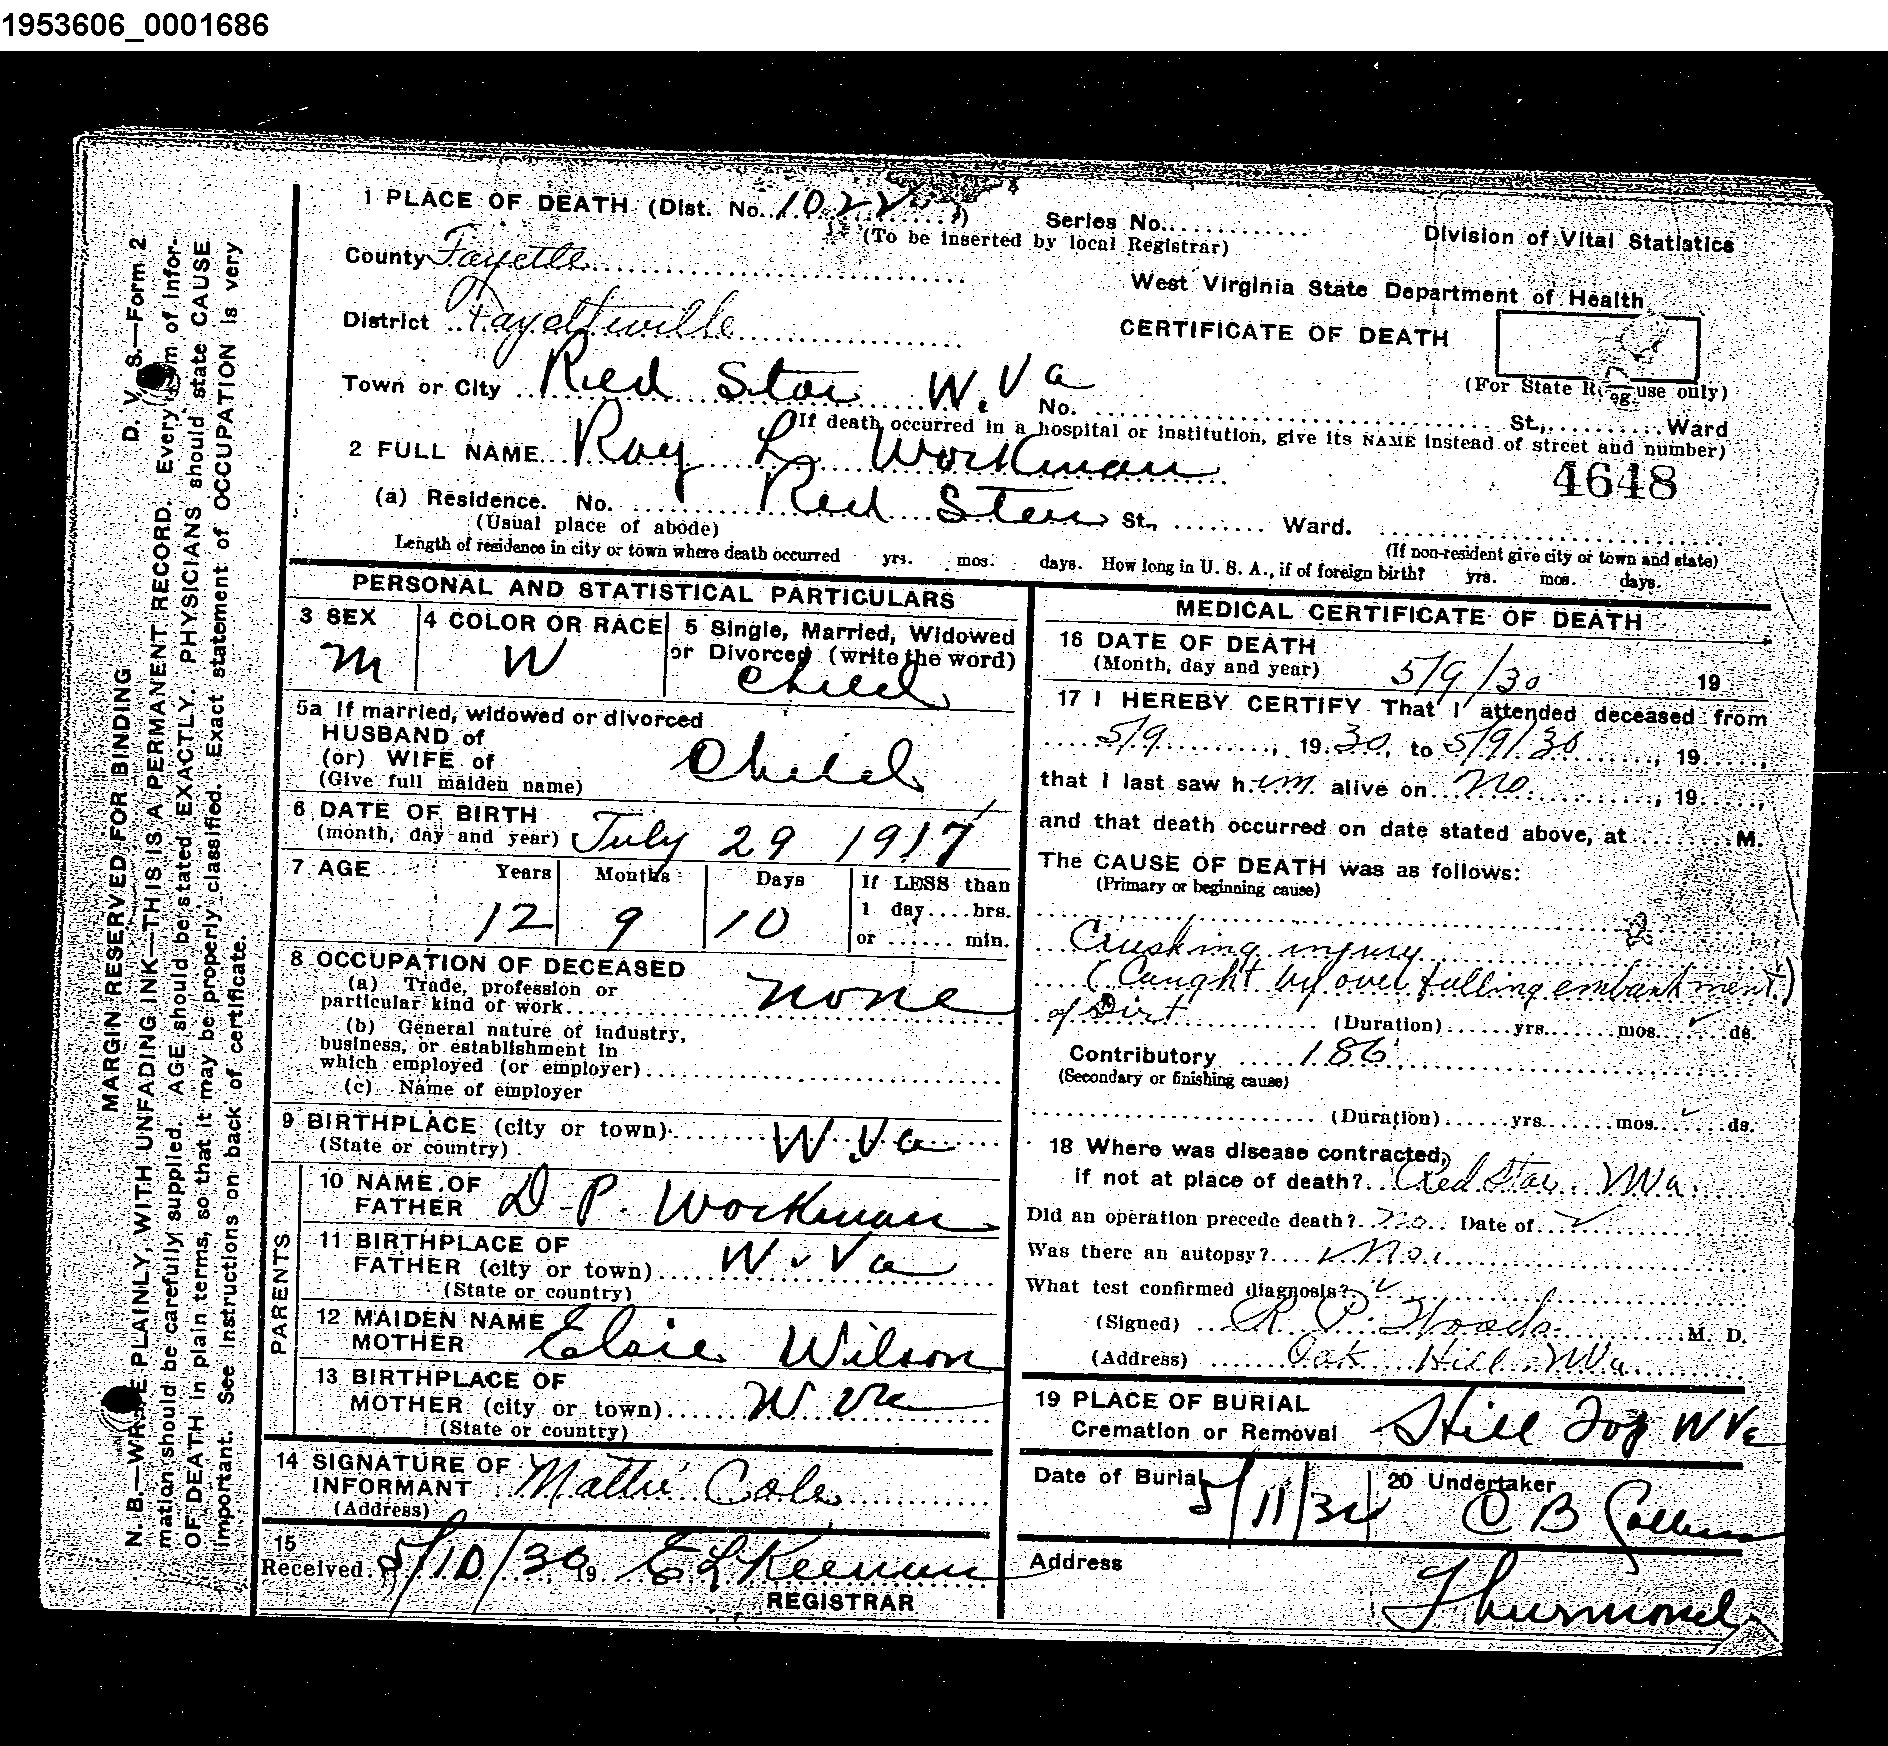 1953606_0001686
1 PLACE OF DEATH (Dist. No. 1022)
Series No.
Division of Vital Statistics
(To be inserted by local Registrar)
County Fayette
West Virginia State Department of Health
District Fayetteville
CERTIFICATE OF DEATH
(For State Reg. use only)
Town or City Red Star W.Va No. St., Ward
(If death occurred in a hospital or institution, give its NAME instead of street and number)
2 FULL NAME Roy L Workman
4648
(a) Residence. No. Red Star St., Ward.
(Usual place of abode)
(If non-resident give city or town and state)
Length of residence in city or town where death occurred yrs. mos. days. How long in U. S. A., if of foreign birth? yrs. mos. days.
PERSONAL AND STATISTICAL PARTICULARS
3 SEX
M
4 COLOR OR RACE
W
5 Single, Married, Widowed
or Divorced (write the word)
Child
5a If married, widowed or divorced
HUSBAND of
(or) WIFE of
(Give full maiden name)
Child
6 DATE OF BIRTH
(month, day and year) July 29 1917
7 AGE Years Months Days If LESS than
1 day....hrs.
or ...... min.
12 9 10
8 OCCUPATION OF DECEASED
(a) Trade, profession or
particular kind of work none
(b) General nature of industry,
business, or establishment in
which employed (or employer)
(c) Name of employer
9 BIRTHPLACE (city or town) W.Va
(State or country)
PARENTS
10 NAME OF
FATHER D-P. Workman
11 BIRTHPLACE OF
FATHER (city or town) W.Va
(State or country)
12 MAIDEN NAME
MOTHER Elsie Wilson
13 BIRTHPLACE OF
MOTHER (city or town) W Va
(State or country)
14 SIGNATURE OF
INFORMANT Mattie Cole
(Address)
15
Received 5/10/30 19 E L Keenan
REGISTRAR
MEDICAL CERTIFICATE OF DEATH
16 DATE OF DEATH
(Month, day and year) 5/9/30 19
17 I HEREBY CERTIFY That I attended deceased from
5/9, 1930, to 5/9/30, 19
that I last saw him alive on no, 19
and that death occurred on date stated above, at M.
The CAUSE OF DEATH was as follows:
(Primary or beginning cause)
Crushing injury
(Caught by over falling embankment)
of Dirt (Duration) yrs. mos. ds.
Contributory 186
(Secondary or finishing cause)
(Duration) yrs. mos. ds.
18 Where was disease contracted,
if not at place of death? Red Star WVa.
Did an operation precede death? no Date of
Was there an autopsy? No.
What test confirmed diagnosis?
(Signed) R P. Woods M. D.
(Address) Oak Hill WVa
19 PLACE OF BURIAL
Cremation or Removal Hill Top W Va
Date of Burial
5/11/30
20 Undertaker
C B
Address
Thurmond
D. V. S.—Form 2
MARGIN RESERVED FOR BINDING
N. B.—WRITE PLAINLY, WITH UNFADING INK—THIS IS A PERMANENT RECORD. Every item of infor-
mation should be carefully supplied. AGE should be stated EXACTLY. PHYSICIANS should state CAUSE
OF DEATH in plain terms, so that it may be properly classified. Exact statement of OCCUPATION is very
important. See instructions on back of certificate.